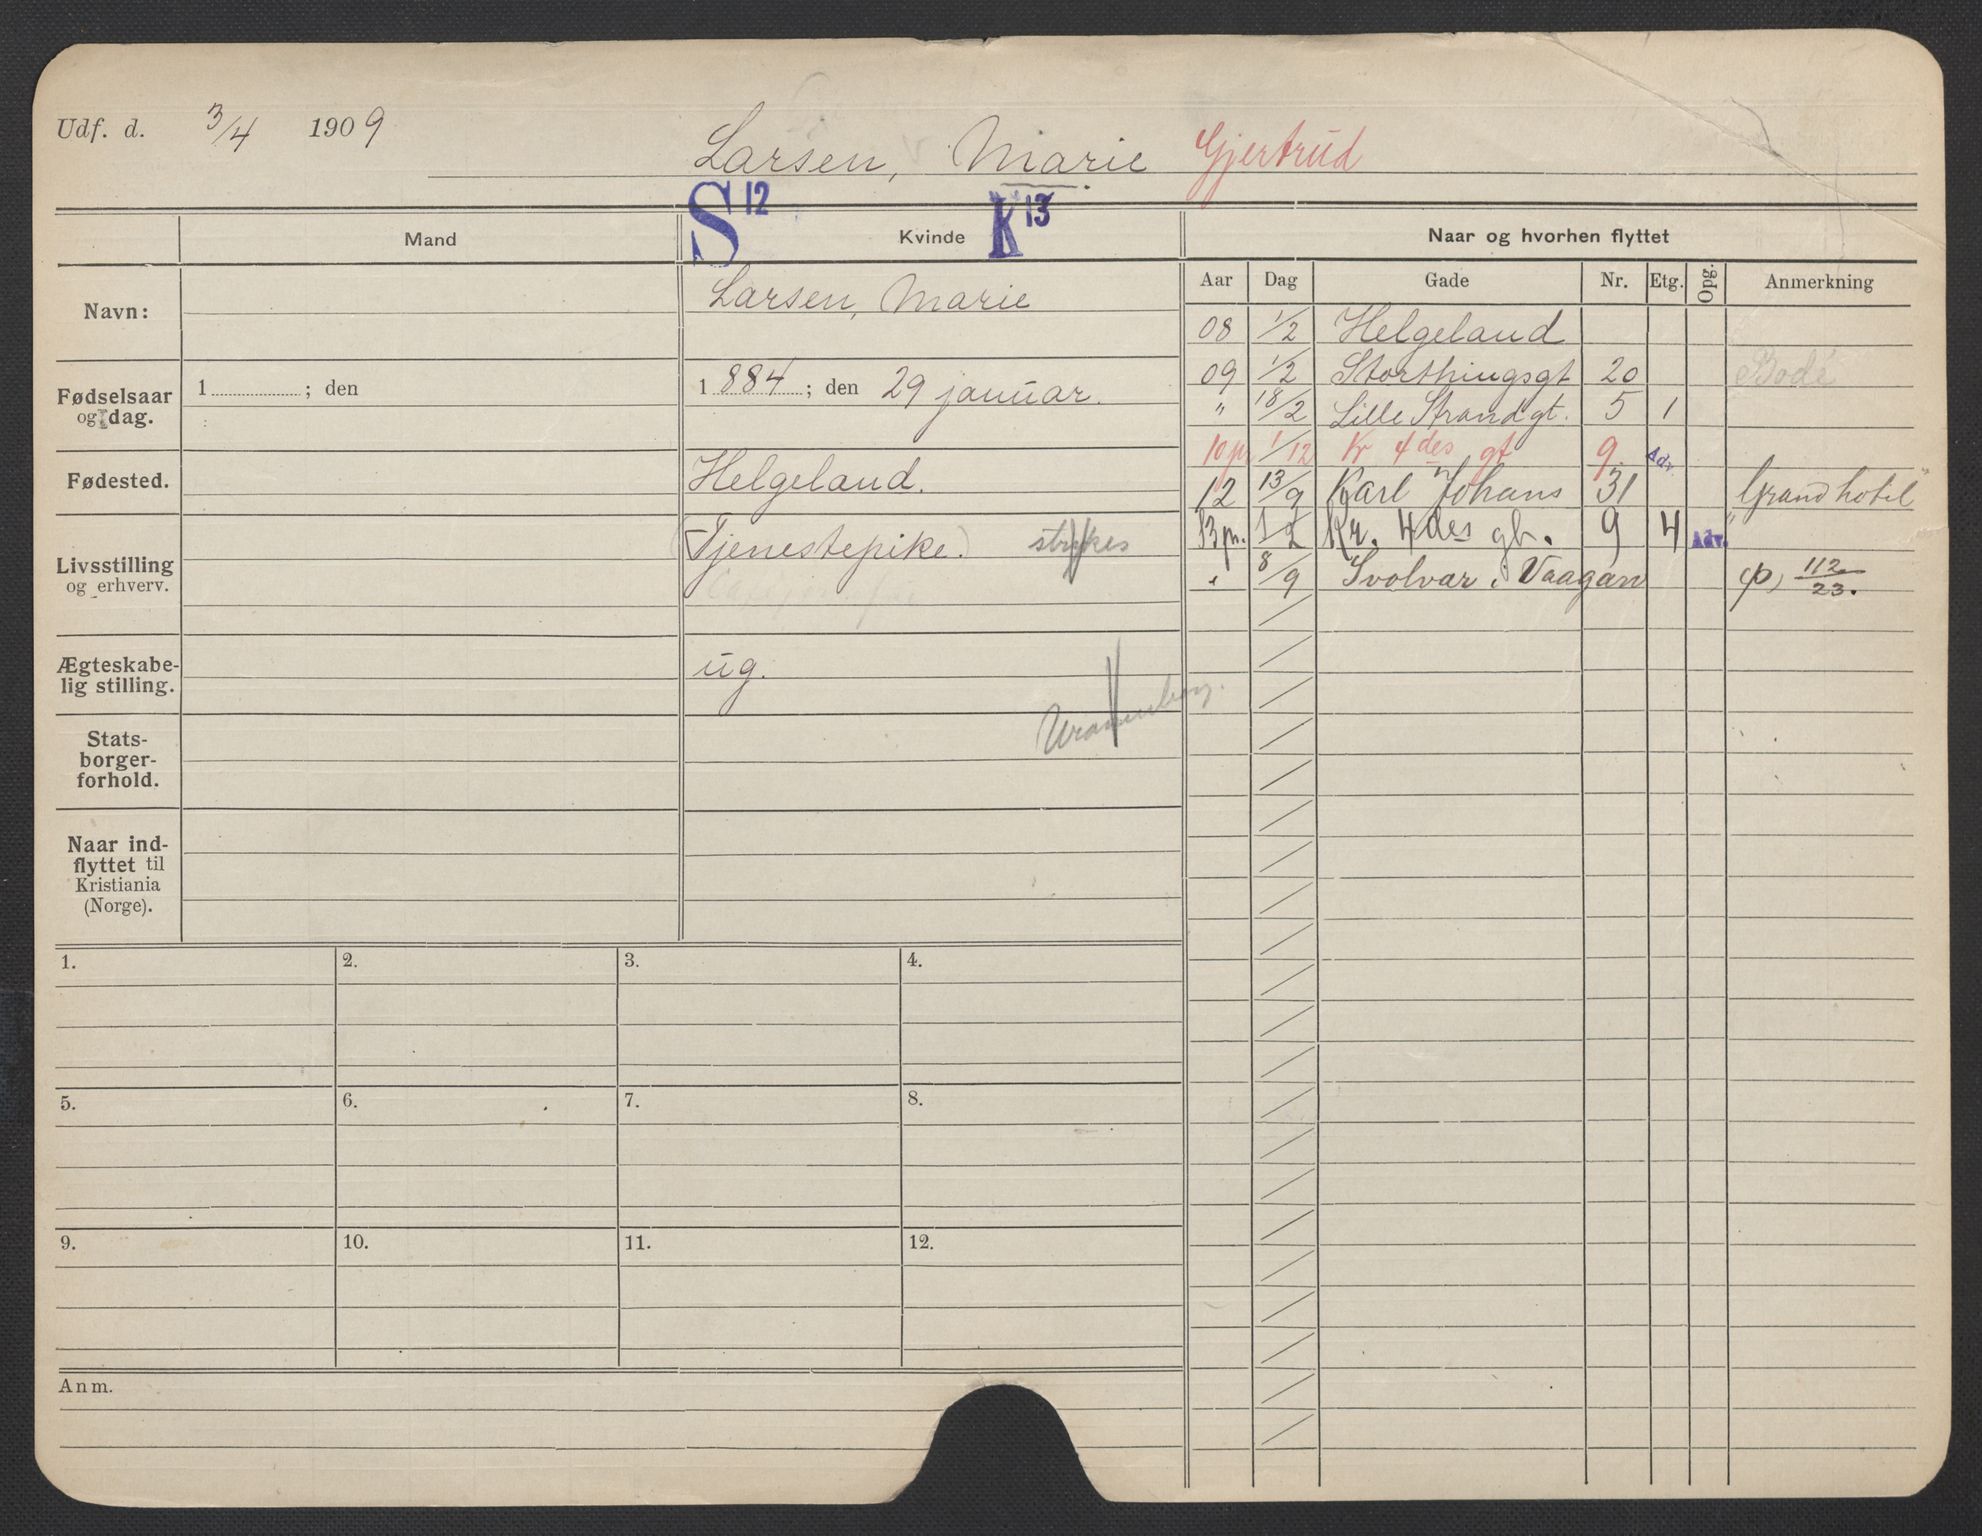 Udf. d. 3/4 1909
Larsen, Marie Gjertrud
S 12
K 13
Mand
Kvinde
Naar og hvorhen flyttet
Navn:
Larsen, Marie
Fødselsaar og dag.
1 ; den
1884 ; den 29 januar.
Fødested.
Helgeland.
Livsstilling og erhverv.
(Tjenestepike.) strykes
Ægteskabelig stilling.
ug.
Statsborgerforhold.
Naar indflyttet til Kristiania (Norge).
Aar Dag Gade Nr. Etg. Opg. Anmerkning
08 1/2 Helgeland
09 1/2 Storthingsgt 20 Bodø
" 18/2 Lille Strandgt. 5 1
10 pr 1/12 Kr 4des gt 9. Adv.
12 13/9 Karl Johans 31 "Grand hotel"
13 pr. 1/2 Kr. 4des gt. 9 4 Adv.
" 8/9 Svolvær i Vaagan 112/23.
1. 2. 3. 4.
5. 6. 7. 8.
9. 10. 11. 12.
Anm.